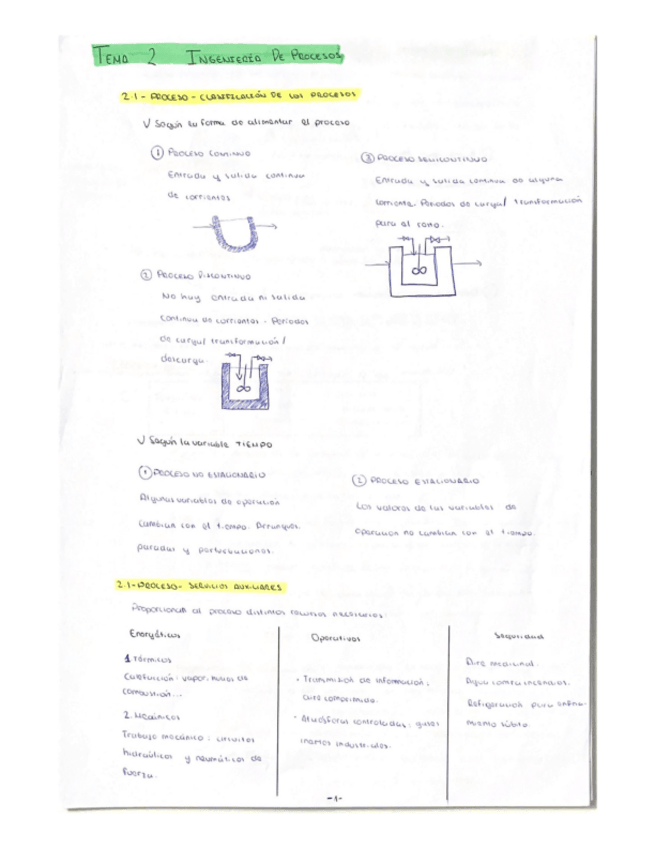 TEMA 2 INGENIERÍA DE PROCESOS
2.1- PROCESO - CLASIFICACIÓN DE LOS PROCESOS
√ Según la forma de alimentar el proceso
① PROCESO CONTINUO
Entrada y salida continua
de corrientes
② PROCESO DISCONTINUO
No hay entrada ni salida
continua de corrientes - Periodos
de carga / transformación /
descarga.
③ PROCESO SEMICONTINUO
Entrada y salida continua de alguna
corriente. Periodos de carga / transformación
para el resto.
√ Según la variable TIEMPO
① PROCESO NO ESTACIONARIO
Algunas variables de operación
cambian con el tiempo. Arranques,
paradas y perturbaciones.
② PROCESO ESTACIONARIO
Los valores de las variables de
operación no cambian con el tiempo.
2.1- PROCESO - SERVICIOS AUXILIARES
Proporcionan al proceso distintos recursos necesarios:
Energéticos
1 Térmicos
Calefacción: vapor, humos de
combustión...
2. Mecánicos
Trabajo mecánico: circuitos
hidraúlicos y neumáticos de
fuerza.
Operativos
• Transmisión de información:
aire comprimido.
• Atmósferas controladas: gases
inertes industriales.
Seguridad
Aire medicinal.
Agua contra incendios.
Refrigeración para enfria-
miento súbito
-1-